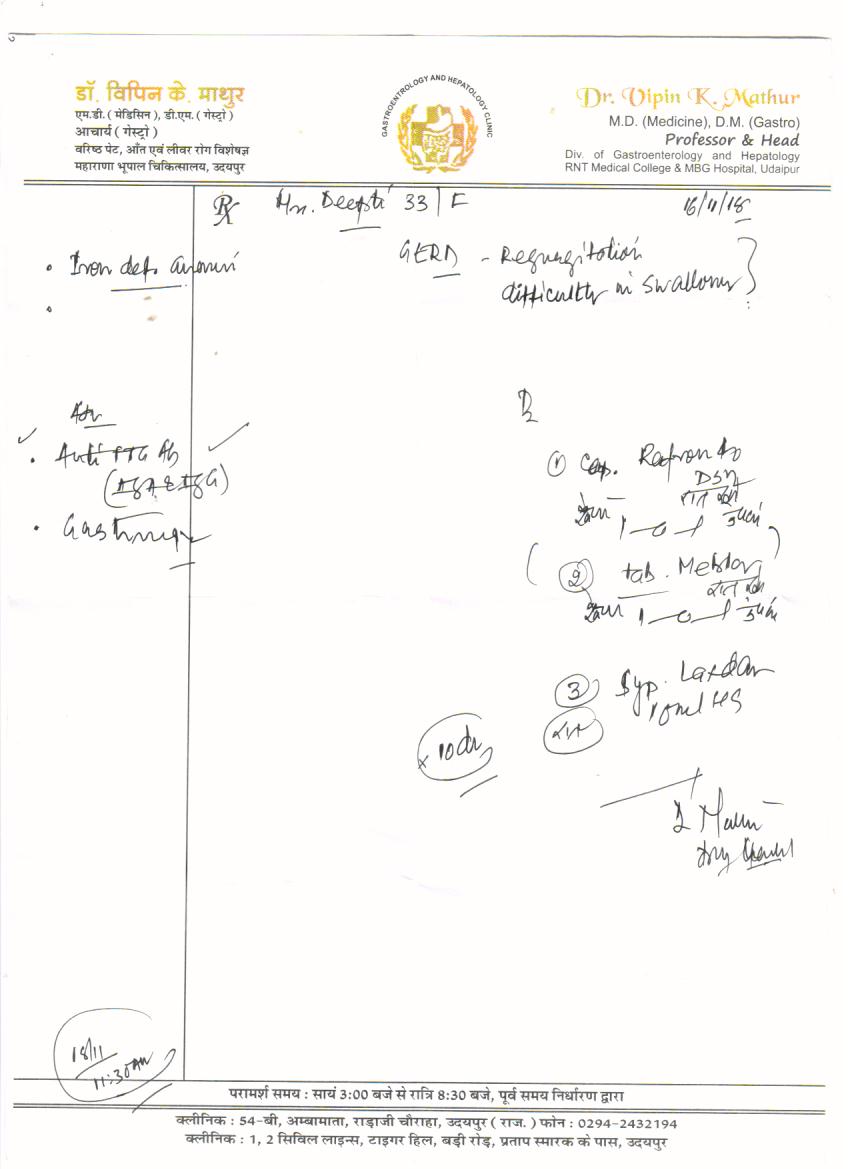 डॉ. विपिन के. माथुर
एम.डी. ( मेडिसिन ), डी.एम. ( गेस्ट्रो )
आचार्य ( गेस्ट्रो )
वरिष्ठ पेट, आँत एवं लीवर रोग विशेषज्ञ
महाराणा भूपाल चिकित्सालय, उदयपुर
GASTROENTROLOGY AND HEPATOLOGY CLINIC
Dr. Vipin K. Mathur
M.D. (Medicine), D.M. (Gastro)
Professor & Head
Div. of Gastroenterology and Hepatology
RNT Medical College & MBG Hospital, Udaipur
Rx Deepti 33 / F 16/11/18
Iron def.
GERD - Regurgitation
difficulty in
Adv
Anti TTG Ab
(IgA & IgG)
① Cap.
DSR
1-0-1
② tab.
1-0-1
③ Syp.
10ml HS
रात
x 10
18/11
11:30 AM
परामर्श समय : सायं 3:00 बजे से रात्रि 8:30 बजे, पूर्व समय निर्धारण द्वारा
क्लीनिक : 54-बी, अम्बामाता, राड़ाजी चौराहा, उदयपुर ( राज. ) फोन : 0294-2432194
क्लीनिक : 1, 2 सिविल लाइन्स, टाइगर हिल, बड़ी रोड़, प्रताप स्मारक के पास, उदयपुर